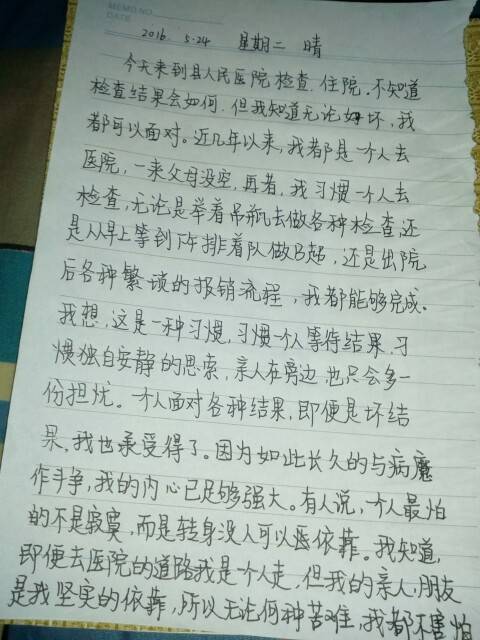 MEMO NO.
DATE
2016. 5.24 星期二 晴
今天来到县人民医院检查.住院。不知道
检查结果会如何.但我知道无论好坏,我
都可以面对。近几年以来,我都是一个人去
医院,一来父母没空,再者,我习惯一个人去
检查,无论是举着吊瓶去做各种检查,还
是从早上等到下午排着队做B超,还是出院
后各种繁琐的报销流程,我都能够完成。
我想,这是一种习惯,习惯一个人等待结果,习
惯独自安静的思索,亲人在旁边也只会多一
份担忧。一个人面对各种结果,即便是坏结
果,我也承受得了。因为如此长久的与病魔
作斗争,我的内心已足够强大。有人说,一个人最怕
的不是寂寞,而是转身没人可以依靠。我知道,
即便去医院的道路我是一个人走,但我的亲人,朋友
是我坚实的依靠,所以无论何种苦难,我都不害怕